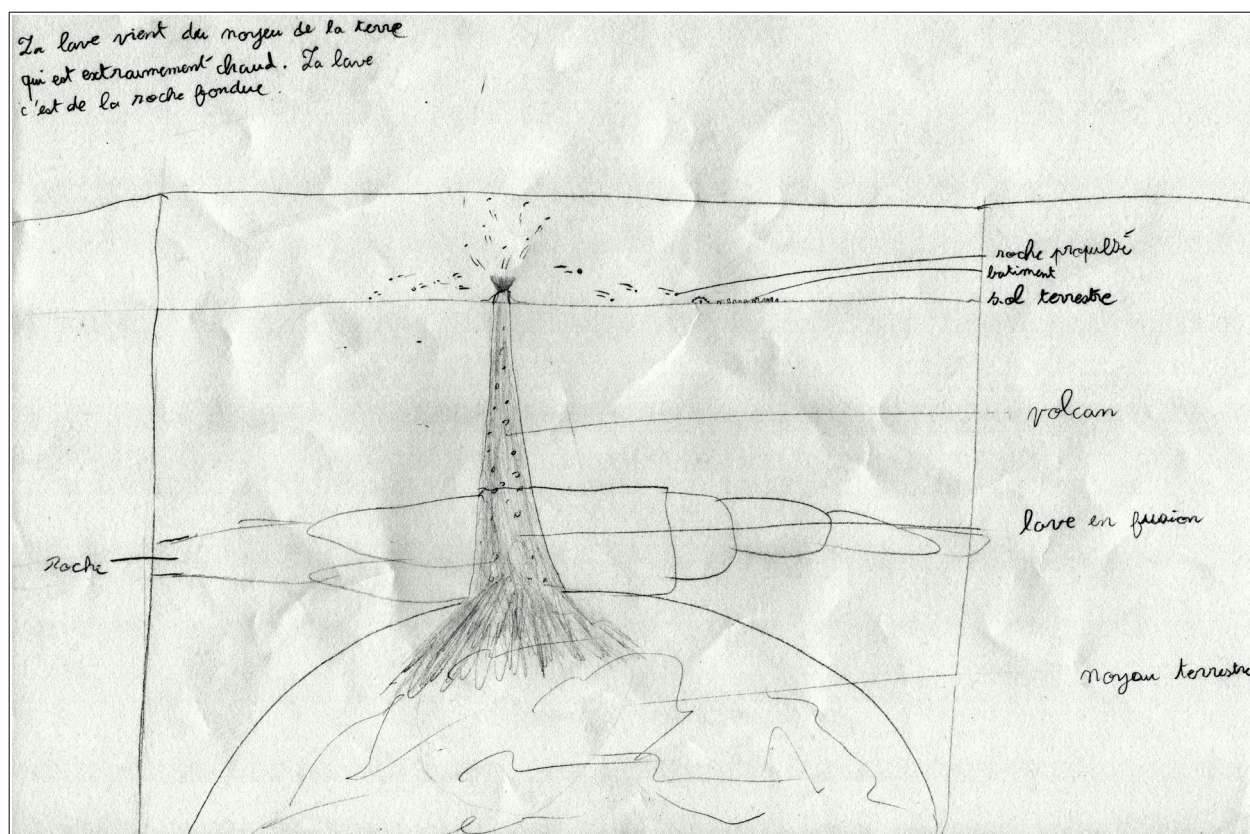 La lave vient du noyeu de la terre
qui est extraumement chaud. La lave
c'est de la roche fondue.
roche propulsé
batiment
sol terrestre
volcan
lave en fusion
Roche
noyau terrestre